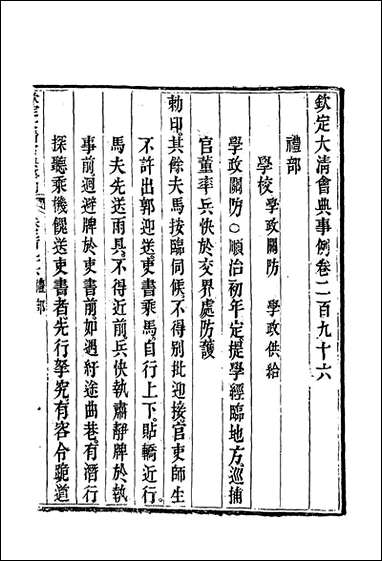 欽定大清會典事例卷二百九十六
禮部
學校 學政關防 學政供給
學政關防○順治初年定提學經臨地方巡捕
官董率兵快於交界處防護
勅印其餘夫馬按臨伺候不得別批迎接官吏師生
不許出郭迎送吏書乘馬自行上下貼轎近行
馬夫先送雨具不得近前兵快執肅靜牌於執
事前迴避牌於吏書前如遇紆途曲巷有潛行
探聽乘機儳送吏書者先行拏究有容令跪道